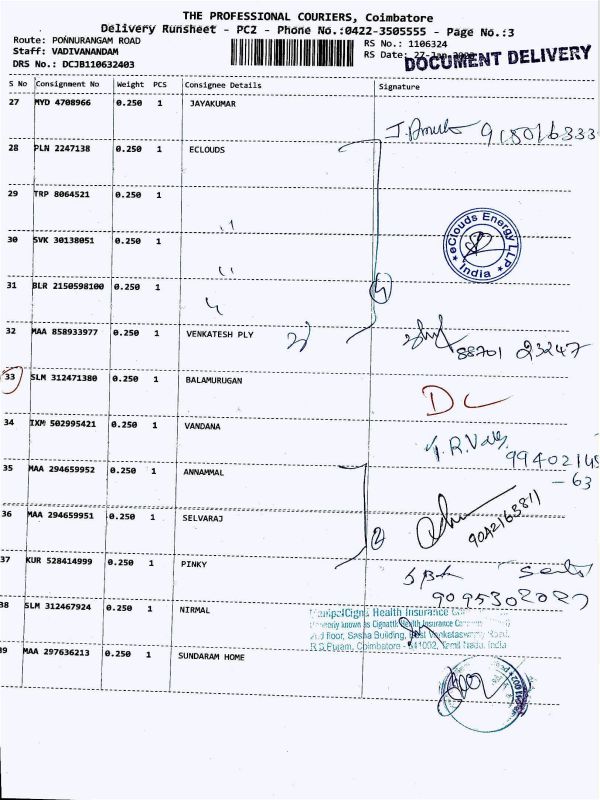 THE PROFESSIONAL COURIERS, Coimbatore
Delivery Runsheet - PC2 - Phone No.:0422-3505555 - Page No.:3
Route: PONNURANGAM ROAD
RS No.: 1106324
Staff: VADIVANANDAM
RS Date: 27-Jan
DOCUMENT DELIVERY
DRS No.: DCJB110632403
S No Consignment No Weight PCS Consignee Details Signature
27 MYD 4708966 0.250 1 JAYAKUMAR
28 PLN 2247138 0.250 1 ECLOUDS
29 TRP 8064521 0.250 1
30 SVK 30138051 0.250 1
eClouds Energy LLP
India
31 BLR 2150598100 0.250 1
4
32 MAA 858933977 0.250 1 VENKATESH PLY
88701 23247
33 SLM 312471380 0.250 1 BALAMURUGAN
DC
34 IXM 502995421 0.250 1 VANDANA
99402145
-63
35 MAA 294659952 0.250 1 ANNAMMAL
9042163811
36 MAA 294659951 0.250 1 SELVARAJ
2
37 KUR 528414999 0.250 1 PINKY
9095302027
38 SLM 312467924 0.250 1 NIRMAL
ManipalCigna Health Insurance
formerly known as CignaTTK Health Insurance Company
floor, Sasha Building, East Venkataswamy Road,
R S Puram, Coimbatore - 641002, Tamil Nadu, India
39 MAA 297636213 0.250 1 SUNDARAM HOME